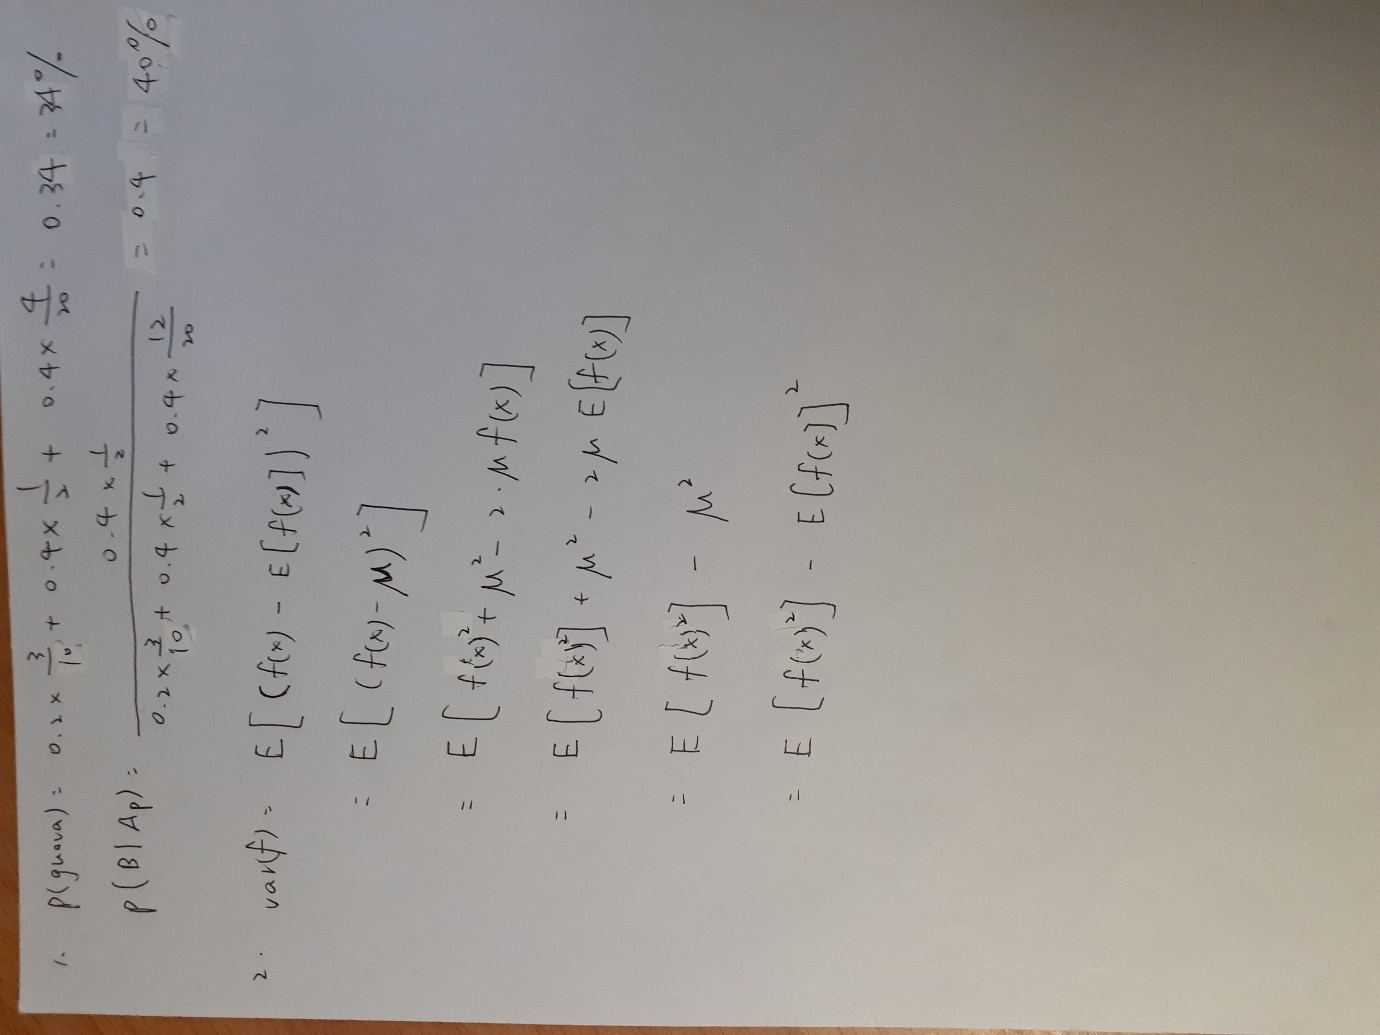 1. P(guava) = 0.2 × 3/10 + 0.4 × 1/2 + 0.4 × 4/20 = 0.34 = 34%
P(B|Ap) = (0.4 × 1/2) / (0.2 × 3/10 + 0.4 × 1/2 + 0.4 × 12/20) = 0.4 = 40%
2. var(f) = E[(f(x) - E[f(x)])²]
= E[(f(x) - μ)²]
= E[f(x)² + μ² - 2·μf(x)]
= E[f(x)²] + μ² - 2μE[f(x)]
= E[f(x)²] - μ²
= E[f(x)²] - E[f(x)]²